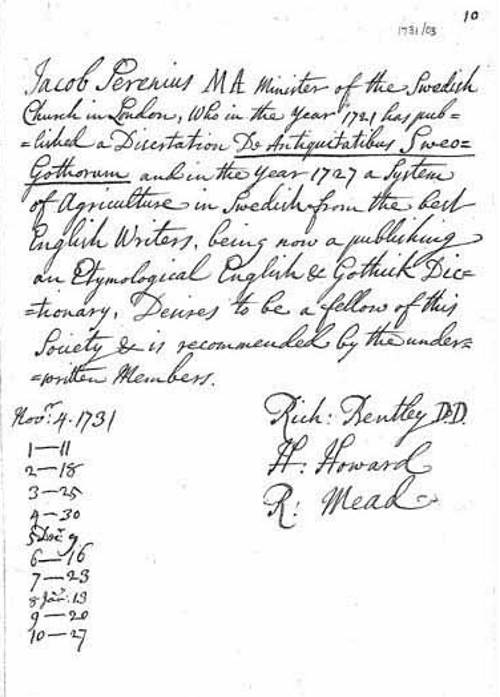 10
1731/03
Jacob Serenius MA Minister of the Swedish
Church in London, Who in the Year 1721 has pub=
=lished a Disertation De Antiquitatibus Sweo=
Gothorum and in the Year 1727 a System
of Agriculture in Swedish from the best
English Writers, being now a publishing
an Etymological English & Gothick Dic=
=tionary, Desires to be a fellow of this
Society & is recommended by the under=
=written Members.
Novr. 4. 1731
Rich: Bentley D.D.
1—11
H: Howard
2—18
R: Mead
3—25
4—30
5 Decr. 9
6—16
7—23
8 Jan. 13
9—20
10—27